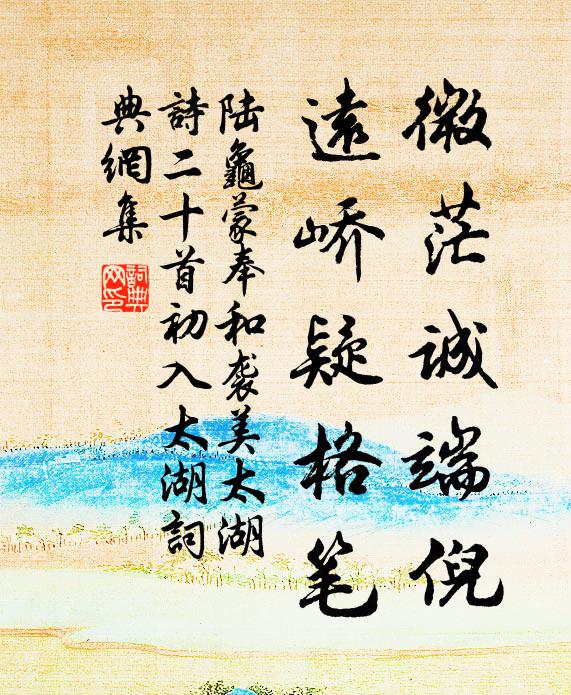 微茫诚端倪
遠峤疑格笔
陆龜蒙奉和袭美太湖
詩二十首初入太湖詞
典網集
詞典网印